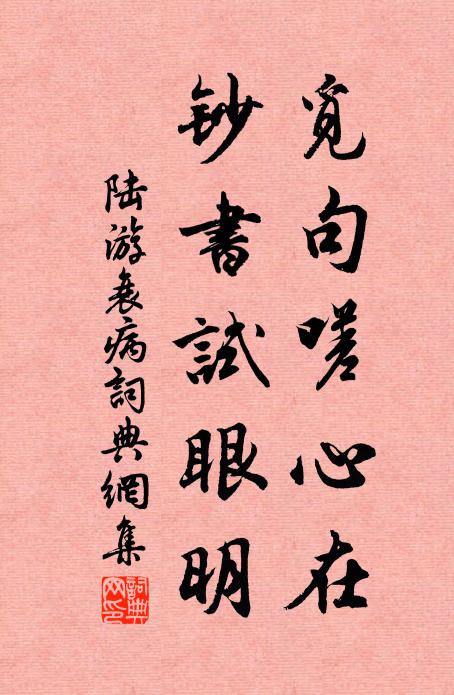 覓句嗟心在
鈔書試眼明
陸游衰病詞典網集
詞典网印